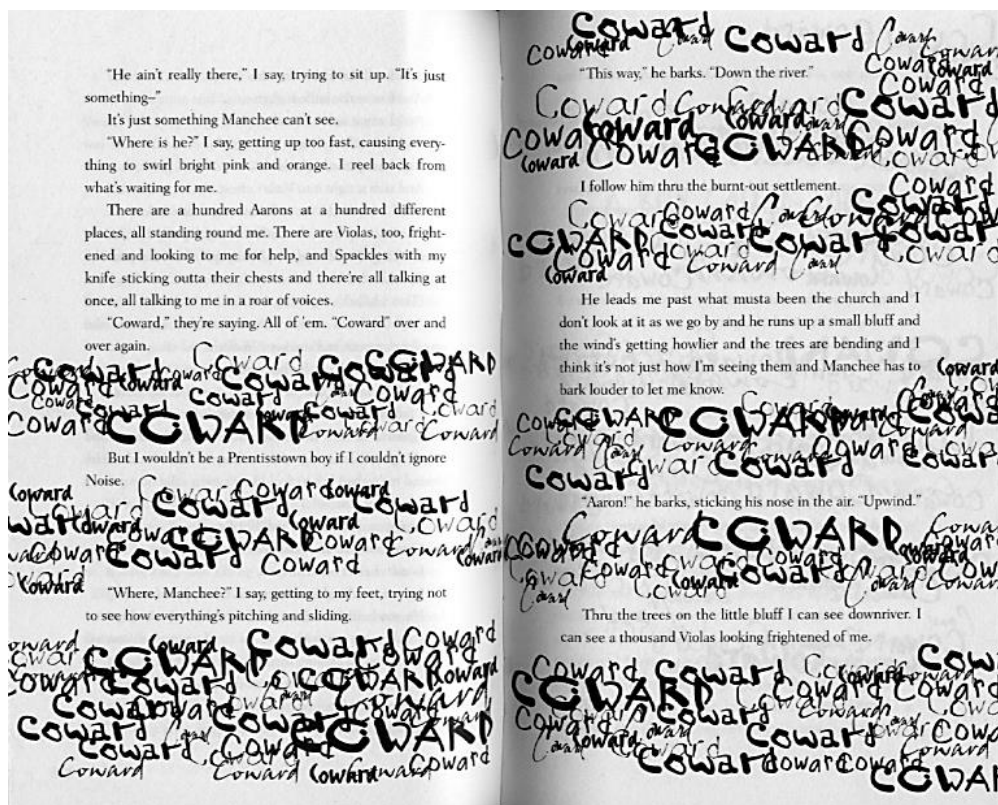 "He ain't really there," I say, trying to sit up. "It's just
something–"
It's just something Manchee can't see.
"Where is he?" I say, getting up too fast, causing every-
thing to swirl bright pink and orange. I reel back from
what's waiting for me.
There are a hundred Aarons at a hundred different
places, all standing round me. There are Violas, too, fright-
ened and looking to me for help, and Spackles with my
knife sticking outta their chests and there're all talking at
once, all talking to me in a roar of voices.
"Coward," they're saying. All of 'em. "Coward" over and
over again.
Coward Coward Coward Coward COWARD
Coward Coward Coward Coward Coward
Coward Coward Coward Coward Coward
Coward COWARD Coward Coward Coward
But I wouldn't be a Prentisstown boy if I couldn't ignore
Noise.
Coward Coward Coward Coward
Coward Coward Coward Coward
Coward COWARD Coward Coward
Coward Coward Coward Coward
Coward
"Where, Manchee?" I say, getting to my feet, trying not
to see how everything's pitching and sliding.
Coward Coward Coward Coward
COWARD Coward Coward
Coward Coward COWARD Coward
Coward Coward Coward Coward
Coward Coward Coward COWARD
Coward Coward Coward
Coward Coward Coward Coward Coward
Coward Coward Coward Coward Coward
Coward Coward Coward
"This way," he barks. "Down the river."
Coward Coward Coward Coward
Coward Coward Coward Coward
Coward Coward COWARD Coward Coward
I follow him thru the burnt-out settlement.
Coward
Coward Coward Coward Coward Coward
COWARD Coward Coward Coward
Coward Coward Coward Coward
Coward
He leads me past what musta been the church and I
don't look at it as we go by and he runs up a small bluff and
the wind's getting howlier and the trees are bending and I
think it's not just how I'm seeing them and Manchee has to
bark louder to let me know.
Coward
Coward Coward Coward
COWARD COWARD Coward Coward
Coward Coward Coward Coward
Coward Coward Coward
"Aaron!" he barks, sticking his nose in the air. "Upwind."
Coward COWARD
Coward Coward Coward Coward
Coward Coward Coward Coward
Coward Coward Coward
Thru the trees on the little bluff I can see downriver. I
can see a thousand Violas looking frightened of me.
Coward Coward Coward
COWARD Coward Coward Coward
Coward Coward Coward
Coward Coward Coward Coward
Coward Coward Coward